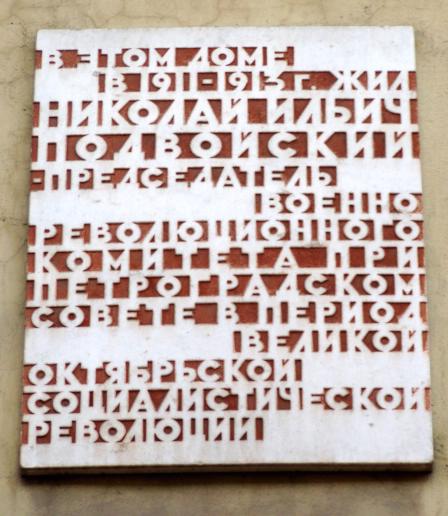 В ЭТОМ ДОМЕ
В 1911-1913 г. ЖИЛ
НИКОЛАЙ ИЛЬИЧ
ПОДВОЙСКИЙ
-ПРЕДСЕДАТЕЛЬ
ВОЕННО
РЕВОЛЮЦИОННОГО
КОМИТЕТА ПРИ
ПЕТРОГРАДСКОМ
СОВЕТЕ В ПЕРИОД
ВЕЛИКОЙ
ОКТЯБРЬСКОЙ
СОЦИАЛИСТИЧЕСКОЙ
РЕВОЛЮЦИИ